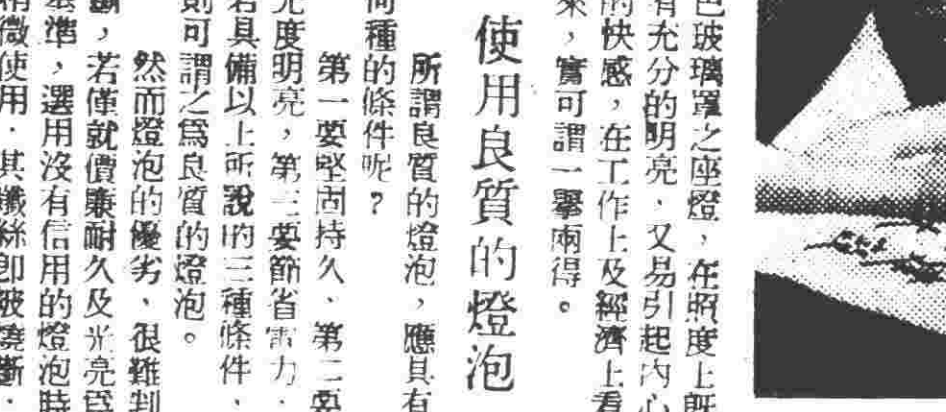 色玻璃罩之座燈，在照度上既
有充分的明亮、又易引起內心
的快感，在工作上及經濟上看
來，實可謂一擧兩得。
使用良質的燈泡
所謂良質的燈泡，應具有
何種的條件呢？
第一要堅固持久、第二要
光度明亮，第三要節省電力．
若具備以上所說的三種條件、
則可謂之爲良質的燈泡。
然而燈泡的優劣、很難判
斷，若僅就價廉耐久及光亮爲
準，選用沒有信用的燈泡時
稍微使用．其纖絲卽破燒斷．